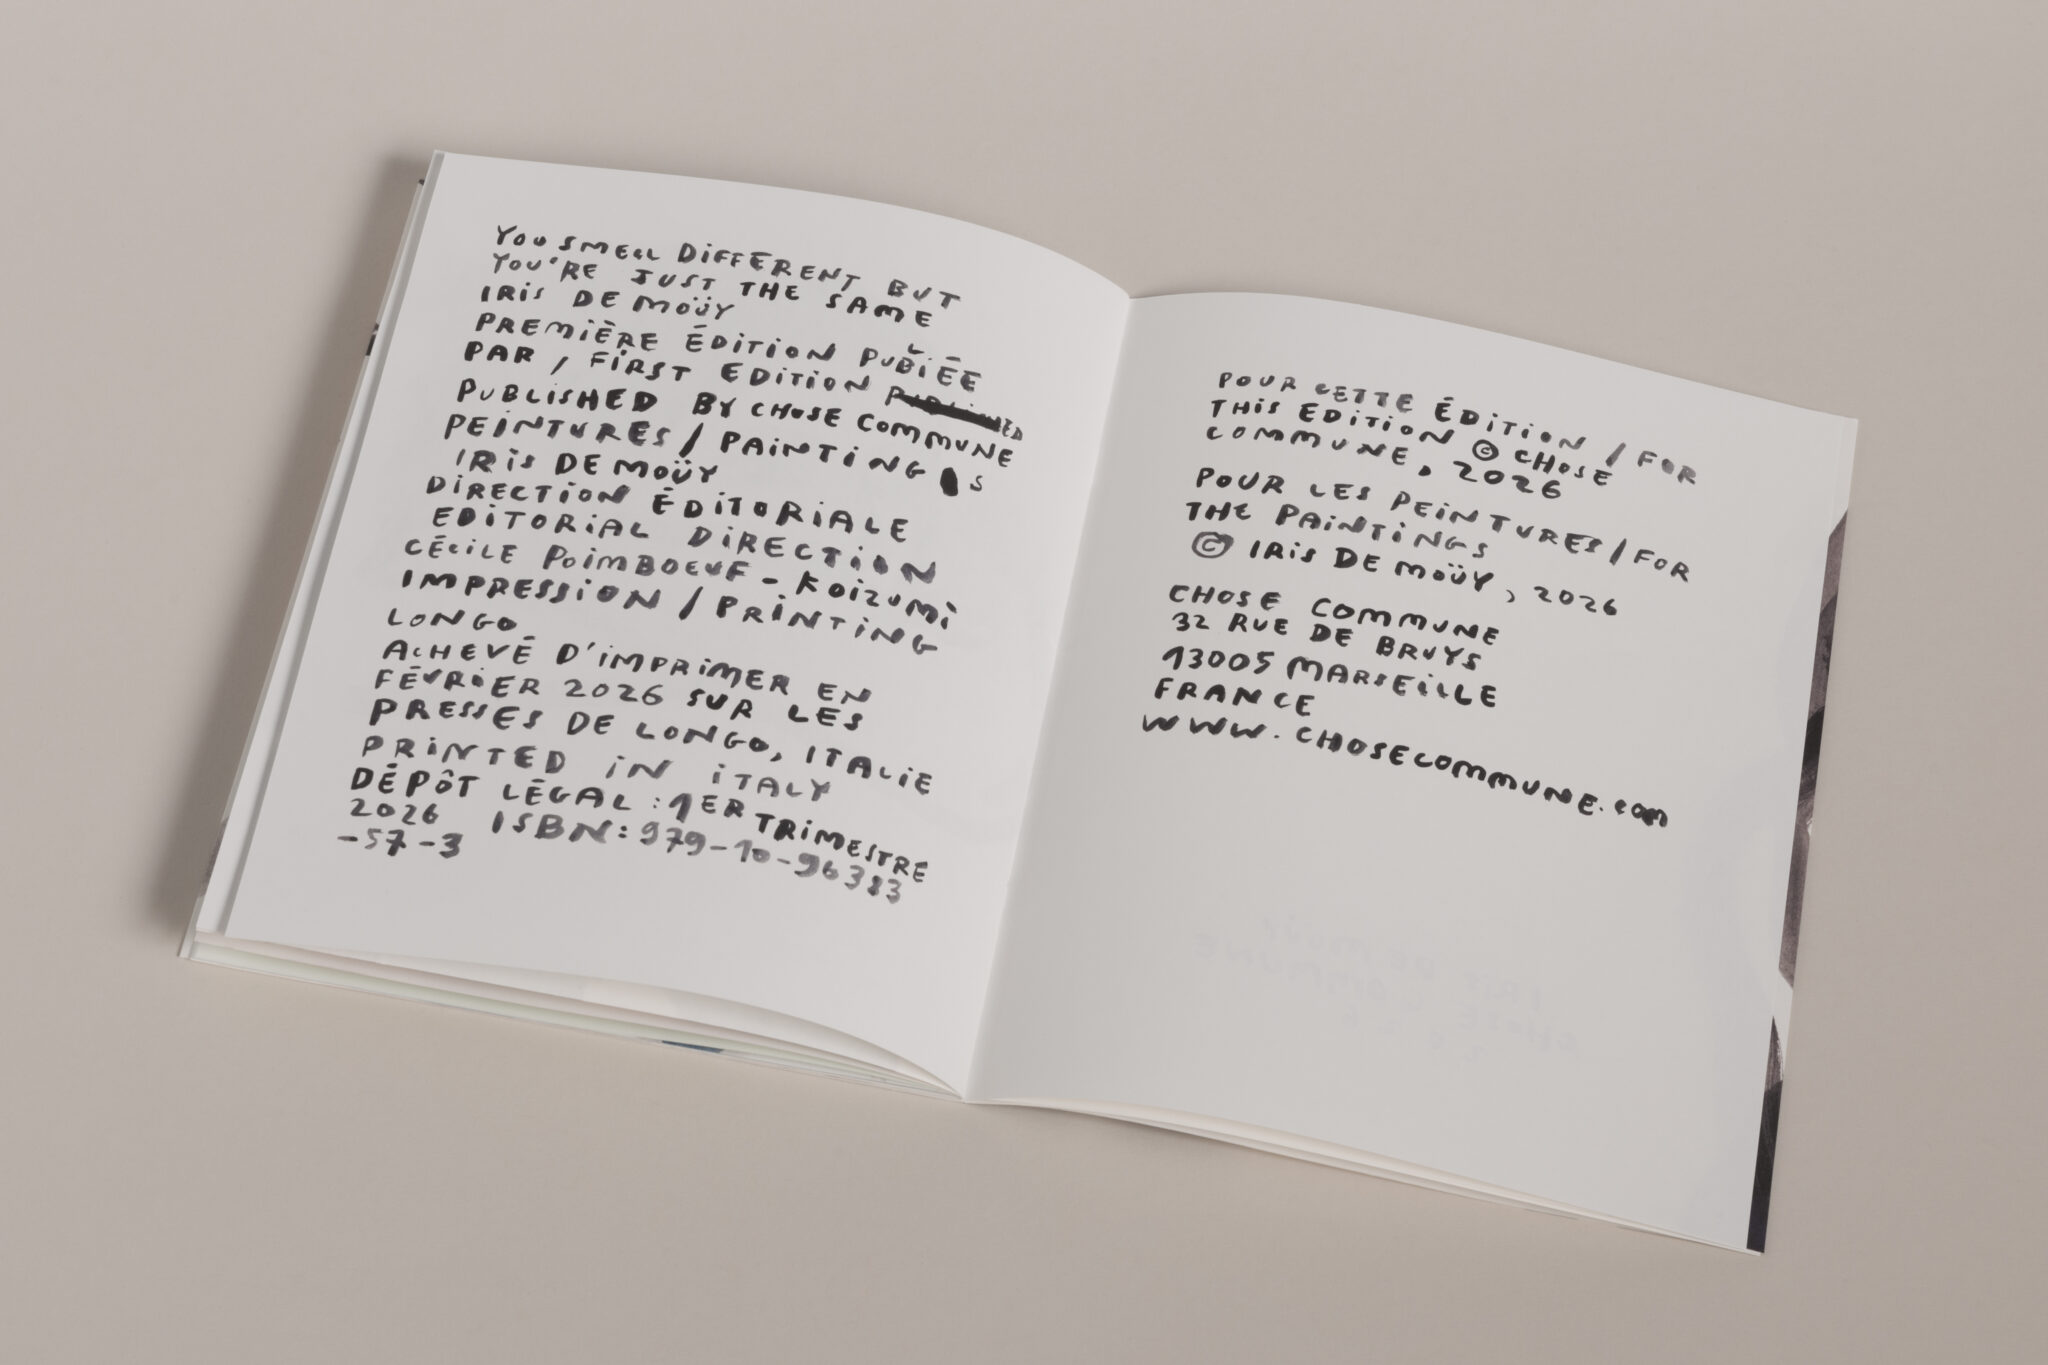 YOU SMELL DIFFERENT BUT
YOU'RE JUST THE SAME
IRIS DE MOÜY
PREMIÈRE ÉDITION PUBLIÉE
PAR / FIRST EDITION
PUBLISHED BY CHOSE COMMUNE
PEINTURES / PAINTING S
IRIS DE MOÜY
DIRECTION ÉDITORIALE
EDITORIAL DIRECTION
CÉCILE POIMBOEUF - KOIZUMI
IMPRESSION / PRINTING
LONGO
ACHEVÉ D'IMPRIMER EN
FÉVRIER 2026 SUR LES
PRESSES DE LONGO, ITALIE
PRINTED IN ITALY
DÉPÔT LÉGAL : 1ER TRIMESTRE
2026 ISBN: 979-10-96383
-57-3
POUR CETTE ÉDITION / FOR
THIS EDITION © CHOSE
COMMUNE, 2026
POUR LES PEINTURES / FOR
THE PAINTINGS
© IRIS DE MOÜY, 2026
CHOSE COMMUNE
32 RUE DE BRUYS
13005 MARSEILLE
FRANCE
WWW.CHOSECOMMUNE.COM